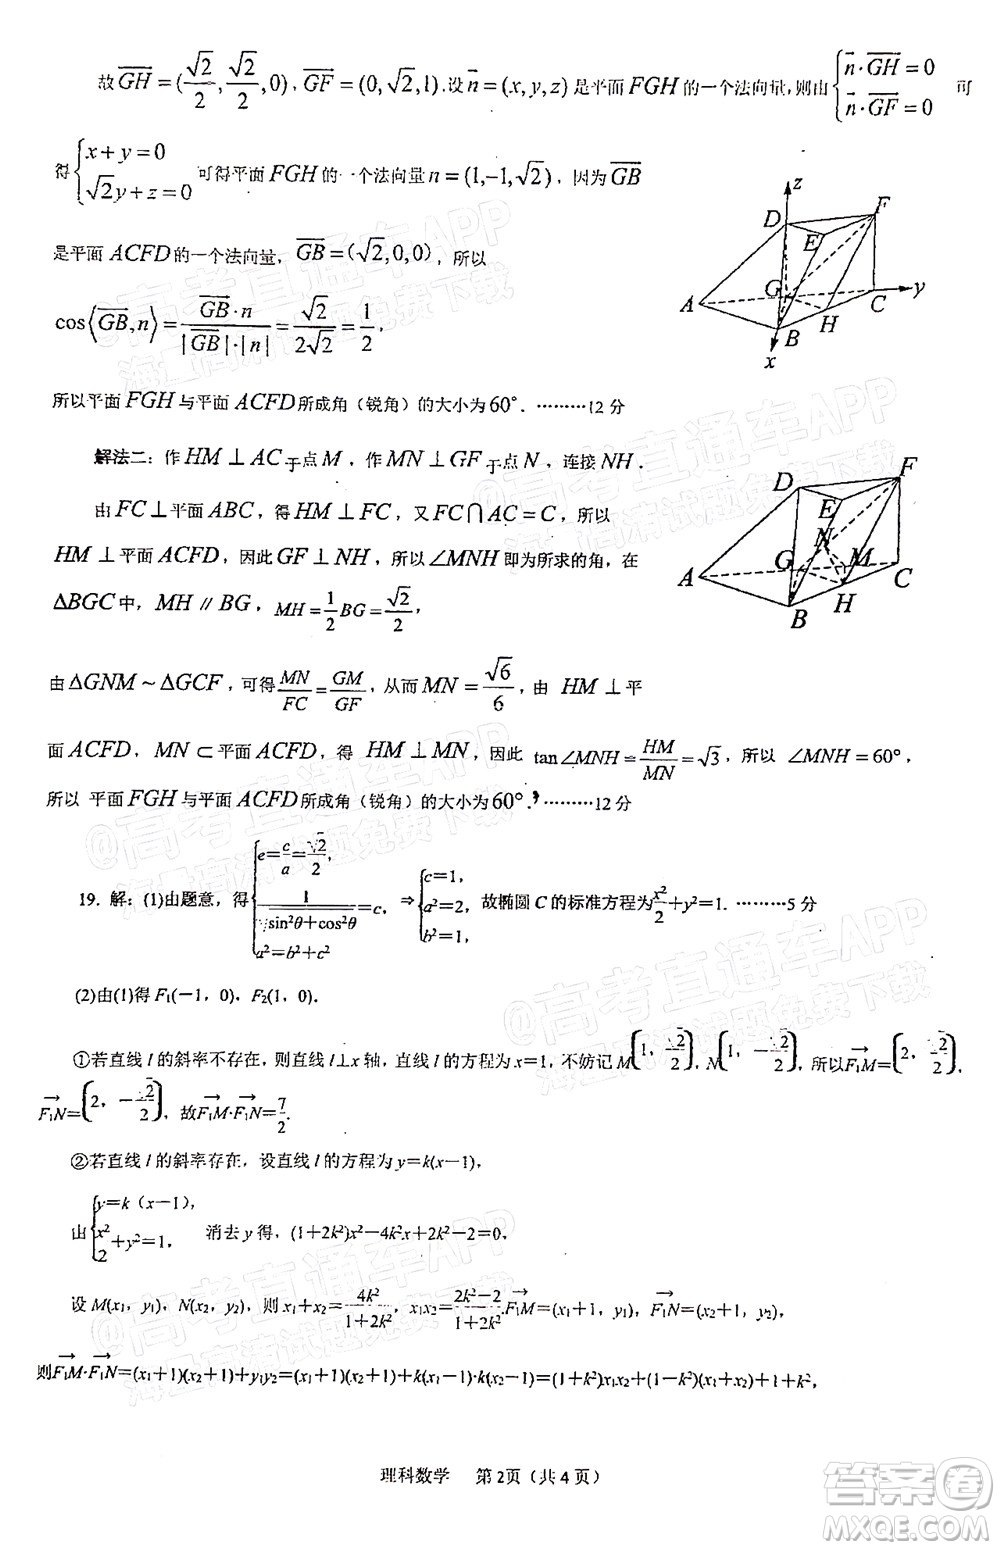 故GH=(√2/2, √2/2, 0), GF=(0, √2, 1).设n=(x, y, z)是平面FGH的一个法向量,则由{n·GH=0 n·GF=0 可
得{x+y=0 √2y+z=0 可得平面FGH的一个法向量n=(1,-1,√2), 因为GB
是平面ACFD的一个法向量, GB=(√2,0,0), 所以
cos⟨GB,n⟩=GB·n/|GB|·|n|=√2/2√2=1/2,
所以平面FGH与平面ACFD所成角(锐角)的大小为60°.………12分
z
D
F
E
G
A
C
y
H
B
x
解法二:作HM⊥AC于点M,作MN⊥GF于点N,连接NH.
由FC⊥平面ABC,得HM⊥FC,又FC∩AC=C,所以
HM⊥平面ACFD,因此GF⊥NH,所以∠MNH即为所求的角,在
ΔBGC中,MH∥BG, MH=1/2BG=√2/2,
由ΔGNM~ΔGCF,可得MN/FC=GM/GF,从而MN=√6/6,由 HM⊥平
面ACFD,MN⊂平面ACFD,得 HM⊥MN,因此 tan∠MNH=HM/MN=√3,所以 ∠MNH=60°,
所以 平面FGH与平面ACFD所成角(锐角)的大小为60°.………12分
D
F
E
N
G
M
A
C
H
B
19. 解:(1)由题意,得{e=c/a=√2/2, 1/√sin²θ+cos²θ=c, a²=b²+c² ⇒{c=1, a²=2, b²=1, 故椭圆C的标准方程为x²/2+y²=1.………5分
(2)由(1)得F₁(-1, 0), F₂(1, 0).
①若直线l的斜率不存在,则直线l⊥x轴,直线l的方程为x=1,不妨记M(1, √2/2), N(1, -√2/2),所以F₁M=(2, √2/2),
F₁N=(2, -√2/2),故F₁M·F₁N=7/2.
②若直线l的斜率存在,设直线l的方程为y=k(x-1),
由{y=k(x-1), x²/2+y²=1, 消去y得,(1+2k²)x²-4k²x+2k²-2=0,
设M(x₁, y₁), N(x₂, y₂),则x₁+x₂=4k²/1+2k², x₁x₂=2k²-2/1+2k².F₁M=(x₁+1, y₁), F₁N=(x₂+1, y₂),
则F₁M·F₁N=(x₁+1)(x₂+1)+y₁y₂=(x₁+1)(x₂+1)+k(x₁-1)·k(x₂-1)=(1+k²)x₁x₂+(1-k²)(x₁+x₂)+1+k²,
理科数学 第2页(共4页)
@高考直通车APP
海量高清试题免费下载
@高考直通车APP
海量高清试题免费下载
@高考直通车APP
海量高清试题免费下载
@高考直通车APP
海量高清试题免费下载
@高考直通车APP
海量高清试题免费下载
答案圈
MXQE.COM